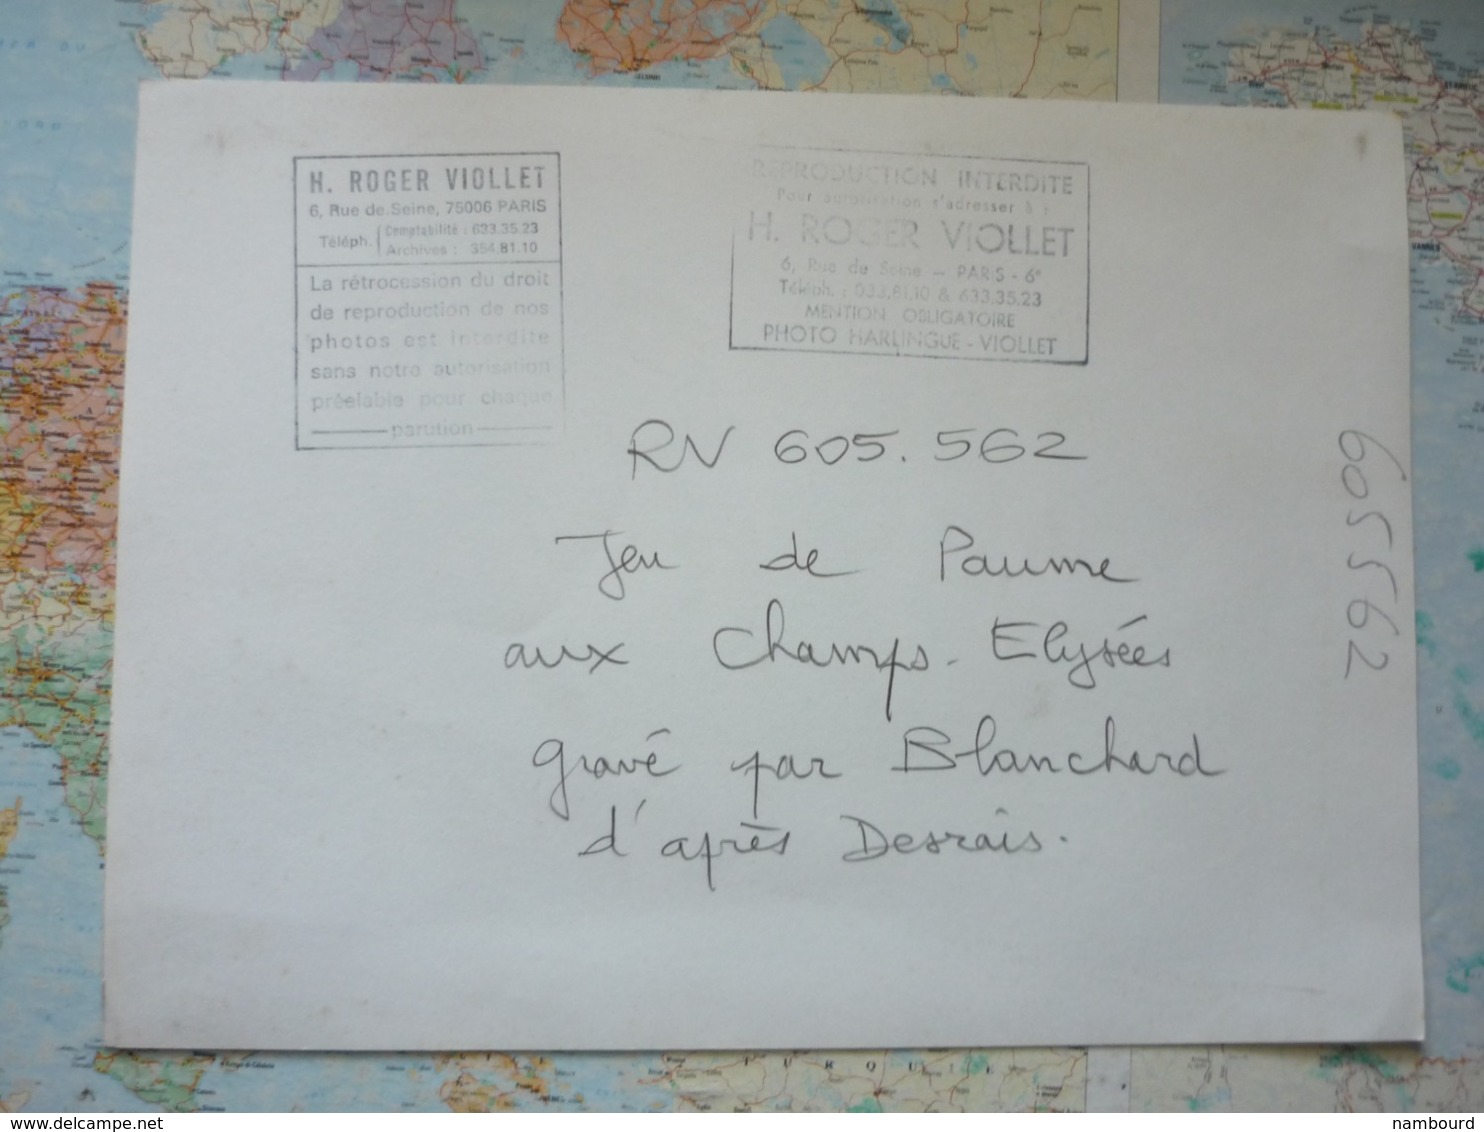 H. ROGER VIOLLET
6, Rue de Seine, 75006 PARIS
Téléph. Comptabilité : 633.35.23
Archives : 354.81.10
La rétrocession du droit
de reproduction de nos
photos est interdite
sans notre autorisation
préelable pour chaque
parution
REPRODUCTION INTERDITE
Pour autorisation s'adresser à :
H. ROGER VIOLLET
6, Rue de Seine - PARIS - 6e
Téléph. : 033.81.10 & 633.35.23
MENTION OBLIGATOIRE
PHOTO HARLINGUE - VIOLLET
RV 605.562
Jeu de Paume
aux Champs-Elysées
gravé par Blanchard
d'après Desrais.
605562
www.delcampe.net
nambourd